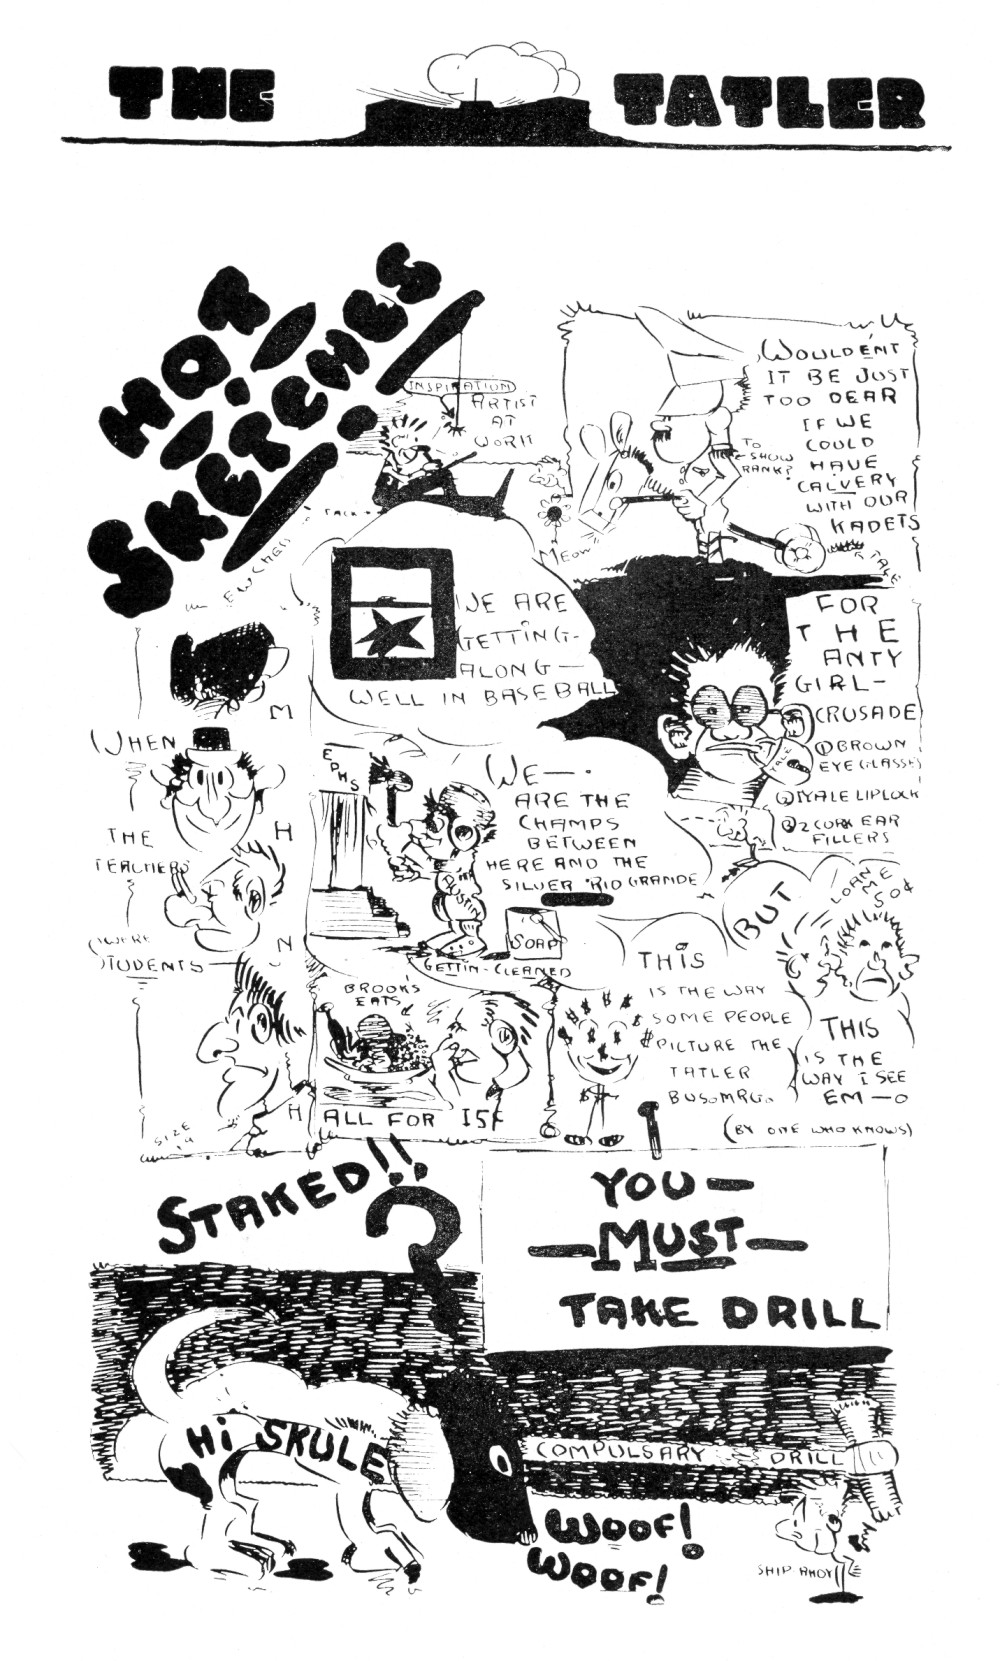 THE TATLER
HOT
SKETCHES
INSPIRATION
ARTIST
AT
WORK
TALK
WOULDENT
IT BE JUST
TOO DEAR
IF WE
COULD
HAVE
CALVERY
WITH OUR
KADETS
TO
SHOW
RANK?
MEOW
WE ARE
GETTING-
ALONG—
WELL IN BASEBALL
FOR
THE
ANTY
GIRL-
CRUSADE
① BROWN
EYE GLASSES
② YALE LIPLOCK
③ 2 CORK EAR
FILLERS
YALE
WHEN
THE
TEACHERS
WERE
STUDENTS—
M
H
N
H
SIZE
14
EPHS
WE—
ARE THE
CHAMPS
BETWEEN
HERE AND THE
SILVER RIO GRANDE
AUSTIN
SOAP
GETTIN-CLEANED
BROOKS
EATS
ALL FOR 15¢
THIS
IS THE WAY
SOME PEOPLE
PICTURE THE
TATLER
BUS.MRG.
BUT
LOAN
ME
50¢
THIS
IS THE
WAY I SEE
EM—O
(BY ONE WHO KNOWS)
STAKED!!
?
YOU—
—MUST—
TAKE DRILL
Hi SKULE
COMPULSARY DRILL
WOOF!
WOOF!
SHIP AHOY